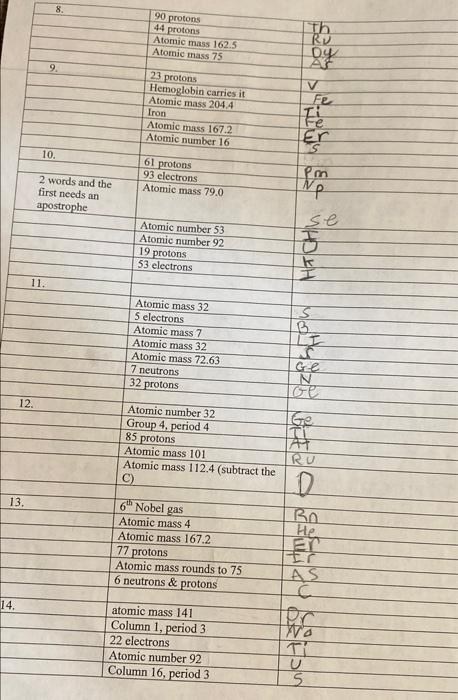 8. 90 protons Th
44 protons RU
Atomic mass 162.5 Dy
Atomic mass 75 As
9. 23 protons V
Hemoglobin carries it Fe
Atomic mass 204.4 Ti
Iron Fe
Atomic mass 167.2 Er
Atomic number 16 S
10. 61 protons Pm
93 electrons Np
2 words and the first needs an apostrophe Atomic mass 79.0 se
Atomic number 53 I
Atomic number 92 U
19 protons K
53 electrons I
11. Atomic mass 32 S
5 electrons B
Atomic mass 7 LI
Atomic mass 32 S
Atomic mass 72.63 Ge
7 neutrons N
32 protons Ge
12. Atomic number 32 Ge
Group 4, period 4 Ti
85 protons At
Atomic mass 101 RU
Atomic mass 112.4 (subtract the C) D
13. 6th Nobel gas Rn
Atomic mass 4 He
Atomic mass 167.2 Er
77 protons Ir
Atomic mass rounds to 75 AS
6 neutrons & protons C
14. atomic mass 141 Pr
Column 1, period 3 Na
22 electrons Ti
Atomic number 92 U
Column 16, period 3 S